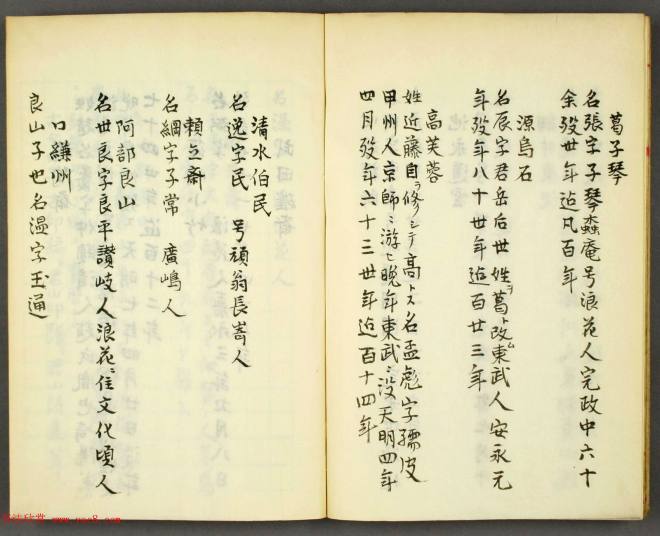 葛子琴
名張字子琴螙庵号浪花人完政中六十
余歿世年迠凡百年
源烏石
名辰字君岳后世姓ヲ葛ニ改ム東武人安永元
年歿年八十世年迠百廿三年
高芙蓉
姓近藤自ラ修シテ高ト名孟彪字孺皮
甲州人京師ニ游ヒ晩年東武ニ没天明四年
四月歿年六十三世年迠百十四年
清水伯民
名逸字民 号頑翁長嵜人
頼立斎
名綱字子常 廣嶋人
阿部良山
名世良字良平讃岐人浪花ニ住文化頃人
口縑州
良山子也名温字玉通
www.yac8.com